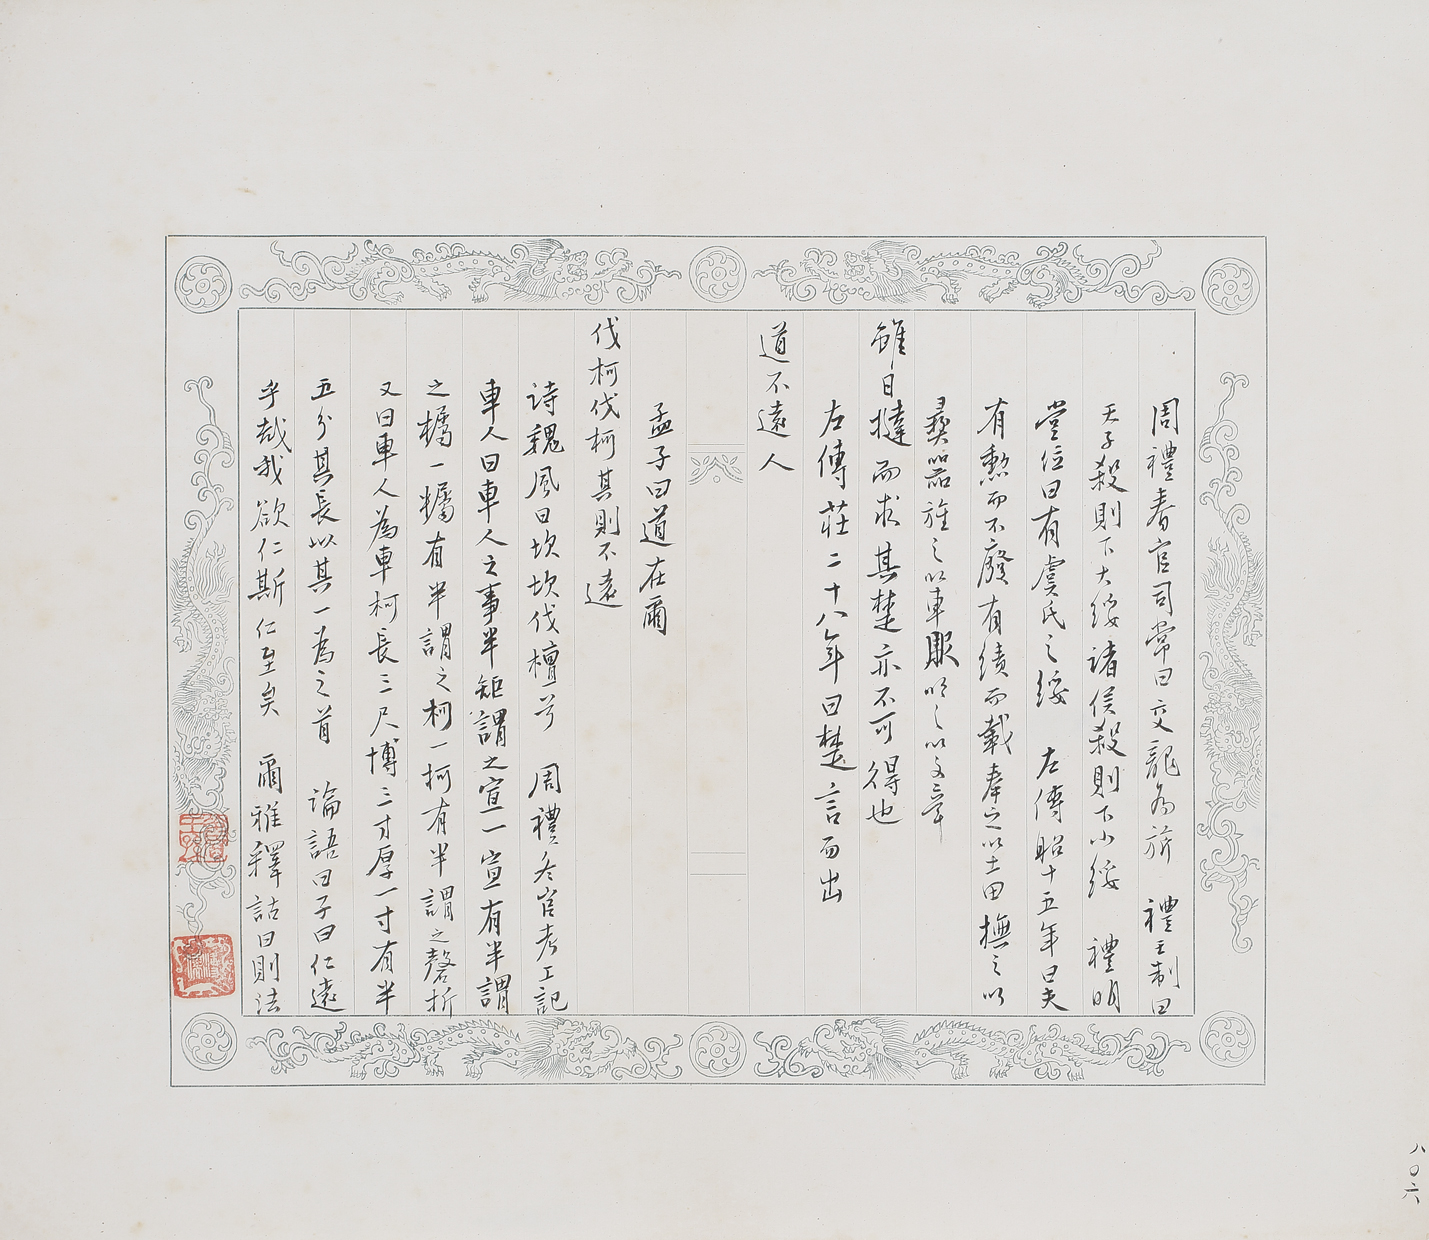 周禮春官司常曰交龍為旂　禮王制曰
天子殺則下大綏諸侯殺則下小綏　禮明
堂位曰有虞氏之綏　左傳昭十五年曰夫
有勳而不廢有績而載奉之以土田撫之以
彝器旌之以車服明之以文章
雖日撻而求其楚亦不可得也
左傳莊二十八年曰楚言而出
道不遠人
孟子曰道在爾
伐柯伐柯其則不遠
詩魏風曰坎坎伐檀兮　周禮冬官考工記
車人曰車人之事半矩謂之宣一宣有半謂
之欘一欘有半謂之柯一柯有半謂之磬折
又曰車人為車柯長三尺博三寸厚一寸有半
五分其長以其一為之首　論語曰子曰仁遠
乎哉我欲仁斯仁至矣　爾雅釋詁曰則法
八〇六